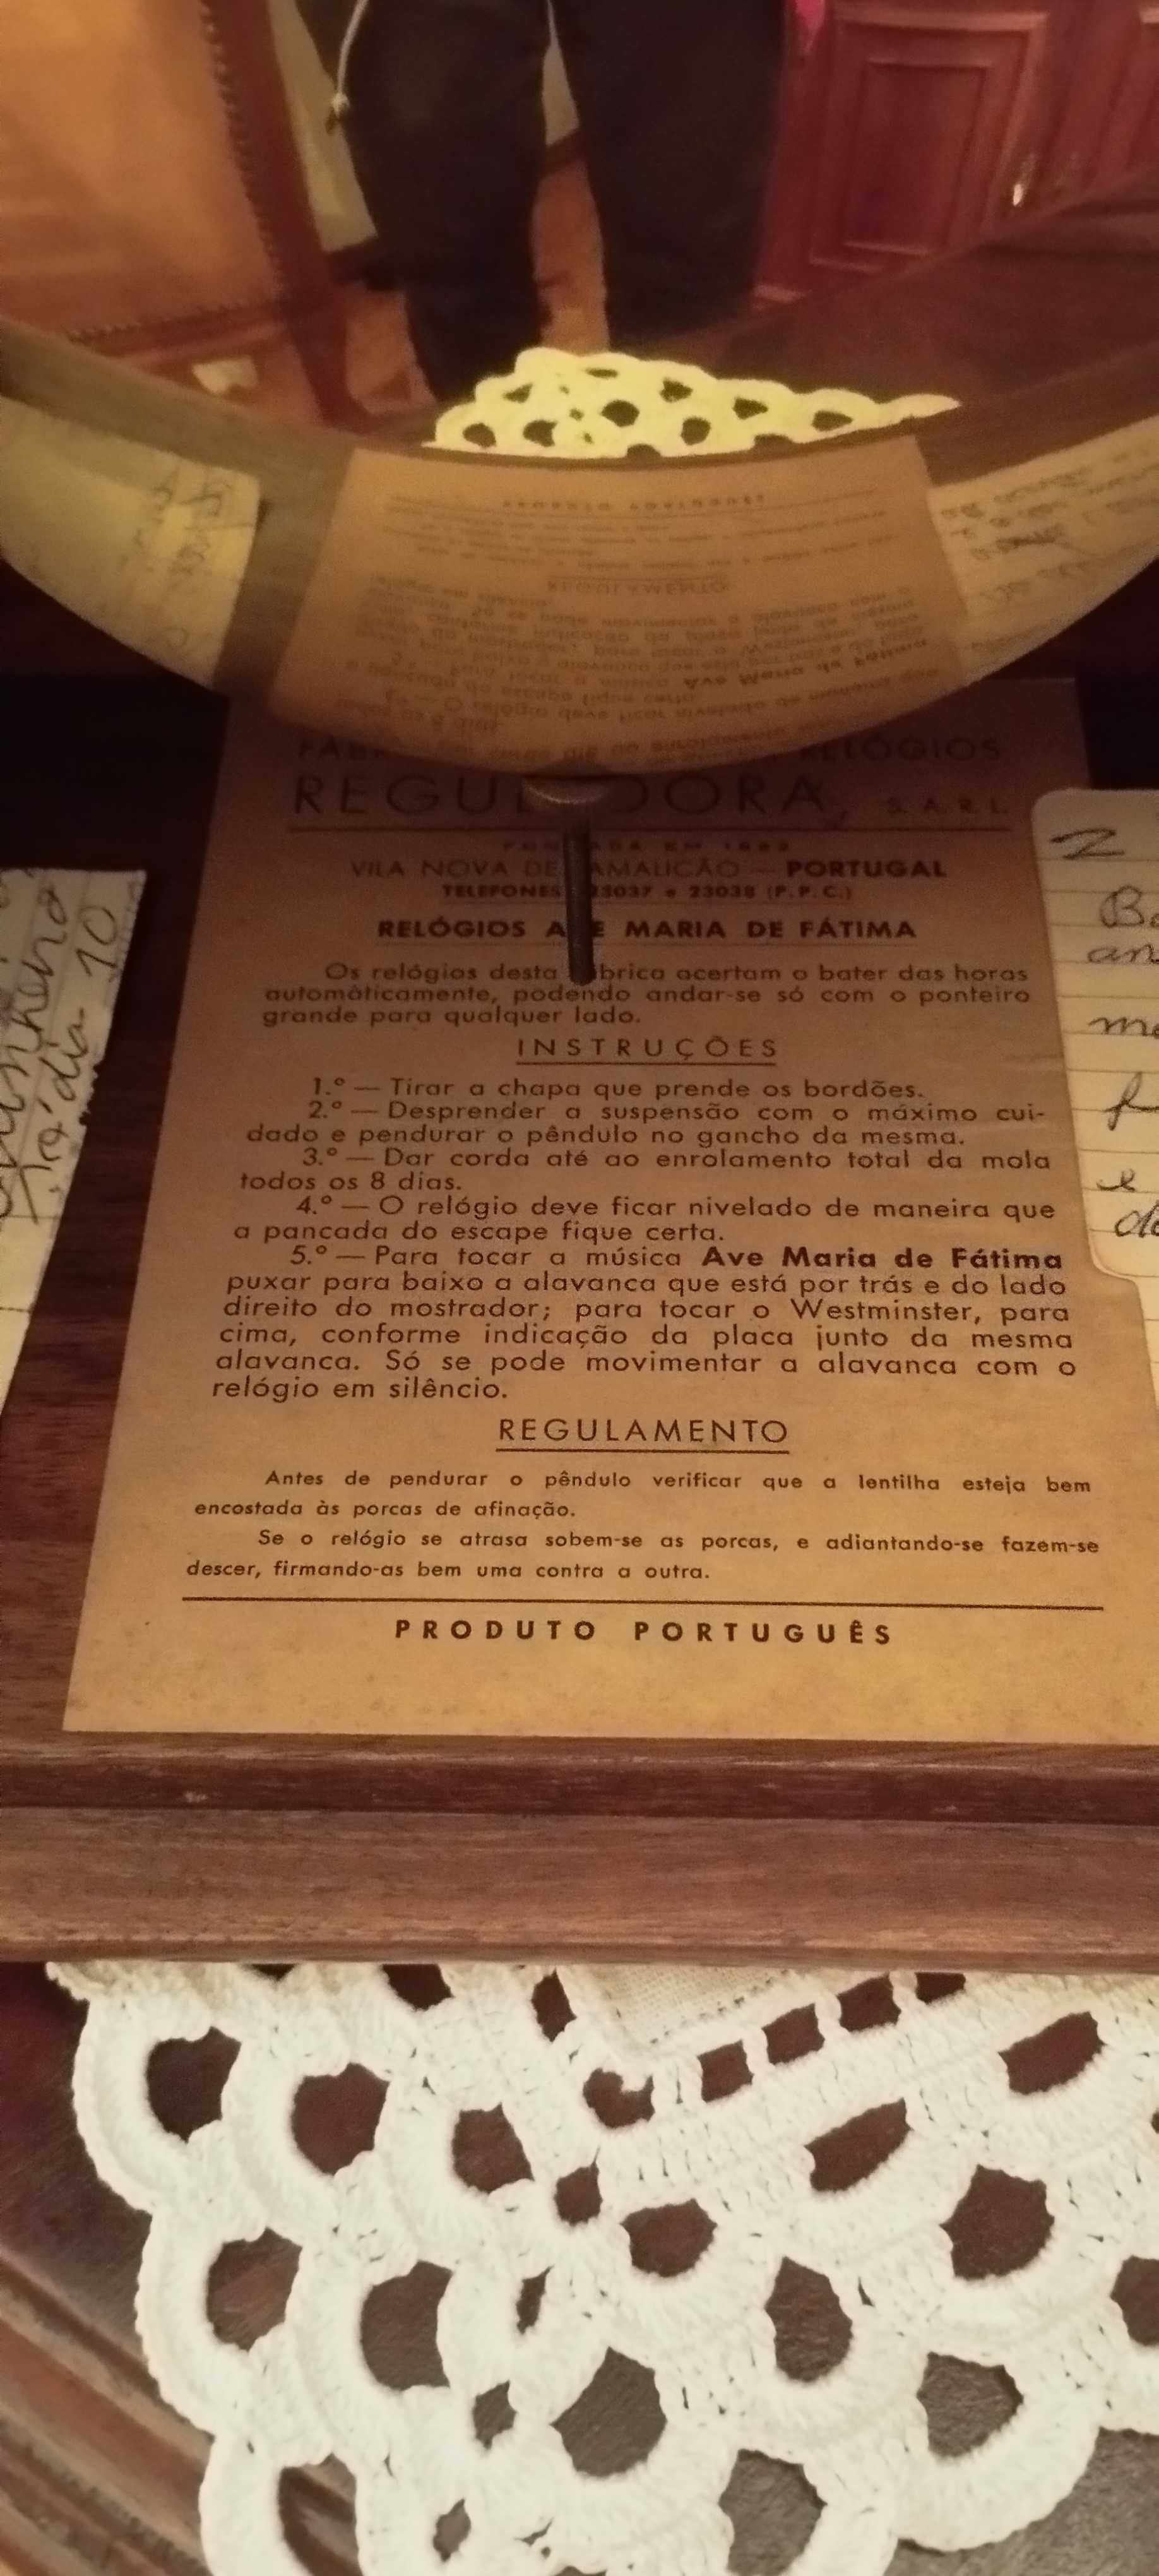 RELÓGIOS
S. A. R. L.
VILA NOVA DE PORTUGAL
TELEFONES e 23038 (P.P.C.)
RELÓGIOS MARIA DE FÁTIMA
Os relógios desta acertam o bater das horas
automàticamente, podendo andar-se só com o ponteiro
grande para qualquer lado.
INSTRUÇÕES
1.º — Tirar a chapa que prende os bordões.
2.º — Desprender a suspensão com o máximo cui-
dado e pendurar o pêndulo no gancho da mesma.
3.º — Dar corda até ao enrolamento total da mola
todos os 8 dias.
4.º — O relógio deve ficar nivelado de maneira que
a pancada do escape fique certa.
5.º — Para tocar a música Ave Maria de Fátima
puxar para baixo a alavanca que está por trás e do lado
direito do mostrador; para tocar o Westminster, para
cima, conforme indicação da placa junto da mesma
alavanca. Só se pode movimentar a alavanca com o
relógio em silêncio.
REGULAMENTO
Antes de pendurar o pêndulo verificar que a lentilha esteja bem
encostada às porcas de afinação.
Se o relógio se atrasa sobem-se as porcas, e adiantando-se fazem-se
descer, firmando-as bem uma contra a outra.
PRODUTO PORTUGUÊS
dia 10
2